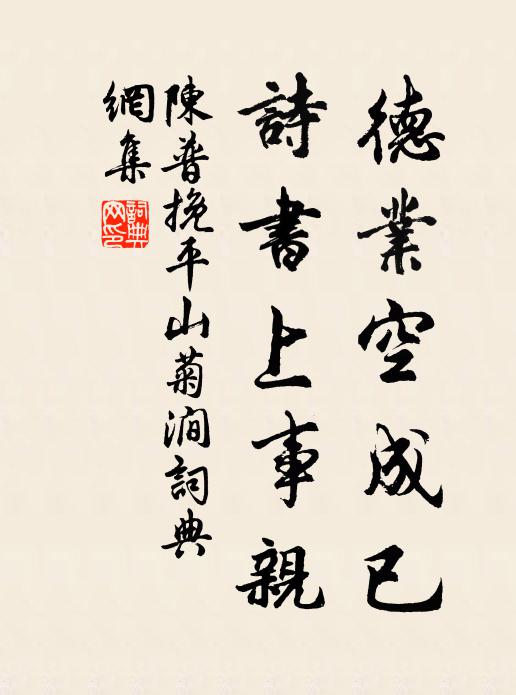 德業空成已
詩書上事親
陳普挽平山菊澗詞典
網集
詞典
网印